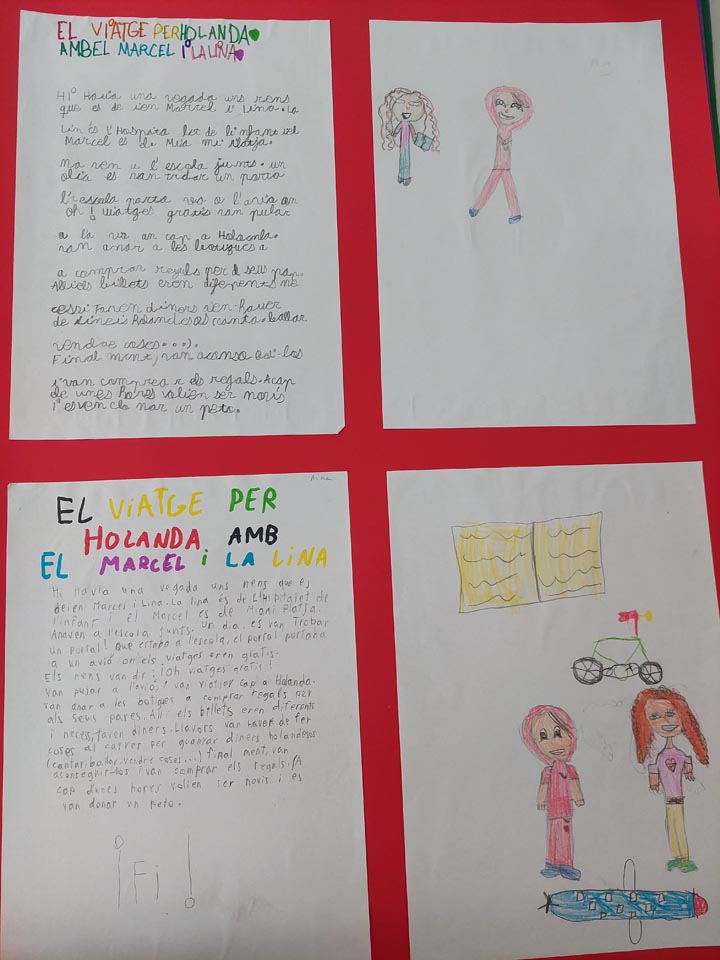 EL VIATGE PER HOLANDA
AMB EL MARCEL I LA LINA
Hi Havia una vegada uns nens
que es de ien Marcel i Lina. La
Lin és l'Hospita let de l'infant el
Marcel es de Mia mi Platja.
na ven a l'escola junts. un
dia es van trobar un porta
l'escola porta va a l'avia on
oh! viatges gratis van pular
a la va an cap a Holanda.
van anar a les botigues a
a comprar regals per el seus pap.
Alli els billets eren diferents ne
cessi Faren diners ven. Haver
de diners Holandesos (canta. ballar
vendre coses...).
Final ment, van aconse Guir-los
i van comprear els regals. Acap
de unes Hores volien ser novis
i es ven do nar un peto.
Aina
EL VIATGE PER
HOLANDA AMB
EL MARCEL i LA LINA
Hi Havia una vegada uns nens que es
deien Marcel i Lina. La lina és de L'Hospitalet de
l'infant i el Marcel es de Miami Platja.
Anaven a l'escola junts. Un dia es van trobar
un portal! Que estaba a l'escola, el portal portaba
a un avió on els viatges eren gratis.
Els nens van dir: ¡Oh viatges gratis!
van pujar a l'avió, i van viatjar cap a Holanda.
van anar a les botigues a comprar regals per
als seus pares. Alli els billets eren diferents
i necessitaven diners. Llavors van haver de fer
coses al carrer per guanyar diners holandesos
(cantar, ballar, vendre coses...) final ment, van
aconseguir-los i van comprar els regals. A
cap dunes hores volien ser novis i es
van donar un peto.
¡Fi!